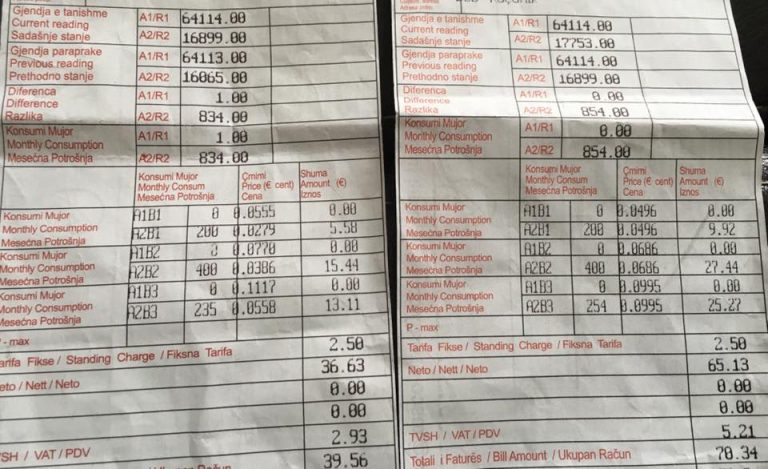 Gjendja e tanishme
Current reading
Sadašnje stanje
A1/R1 64114.00
A2/R2 16899.00
Gjendja paraprake
Previous reading
Prethodno stanje
A1/R1 64113.00
A2/R2 16065.00
Diferenca
Difference
Razlika
A1/R1 1.00
A2/R2 834.00
Konsumi Mujor
Monthly Consumption
Mesečna Potrošnja
A1/R1 1.00
A2/R2 834.00
Konsumi Mujor
Monthly Consum
Mesečna Potrošnja
Çmimi
Price (€ cent)
Cena
Shuma
Amount (€)
Iznos
Konsumi Mujor
Monthly Consumption
Mesečna Potrošnja
A1B1 0 0.0555 0.00
A2B1 200 0.0279 5.58
Konsumi Mujor
Monthly Consumption
Mesečna Potrošnja
A1B2 0 0.0770 0.00
A2B2 400 0.0386 15.44
Konsumi Mujor
Monthly Consumption
Mesečna Potrošnja
A1B3 0 0.1117 0.00
A2B3 235 0.0558 13.11
P - max
Tarifa Fikse / Standing Charge / Fiksna Tarifa 2.50
Neto / Nett / Neto 36.63
0.00
0.00
TVSH / VAT / PDV 2.93
39.56
Gjendja e tanishme
Current reading
Sadašnje stanje
A1/R1 64114.00
A2/R2 17753.00
Gjendja paraprake
Previous reading
Prethodno stanje
A1/R1 64114.00
A2/R2 16899.00
Diferenca
Difference
Razlika
A1/R1 0.00
A2/R2 854.00
Konsumi Mujor
Monthly Consumption
Mesečna Potrošnja
A1/R1 0.00
A2/R2 854.00
Konsumi Mujor
Monthly Consum
Mesečna Potrošnja
Çmimi
Price (€ cent)
Cena
Shuma
Amount (€)
Iznos
Konsumi Mujor
Monthly Consumption
Mesečna Potrošnja
A1B1 0 0.0496 0.00
A2B1 200 0.0496 9.92
Konsumi Mujor
Monthly Consumption
Mesečna Potrošnja
A1B2 0 0.0686 0.00
A2B2 400 0.0686 27.44
Konsumi Mujor
Monthly Consumption
Mesečna Potrošnja
A1B3 0 0.0995 0.00
A2B3 254 0.0995 25.27
P - max
Tarifa Fikse / Standing Charge / Fiksna Tarifa 2.50
Neto / Nett / Neto 65.13
0.00
0.00
TVSH / VAT / PDV 5.21
Totali i Faturës / Bill Amount / Ukupan Račun 70.34